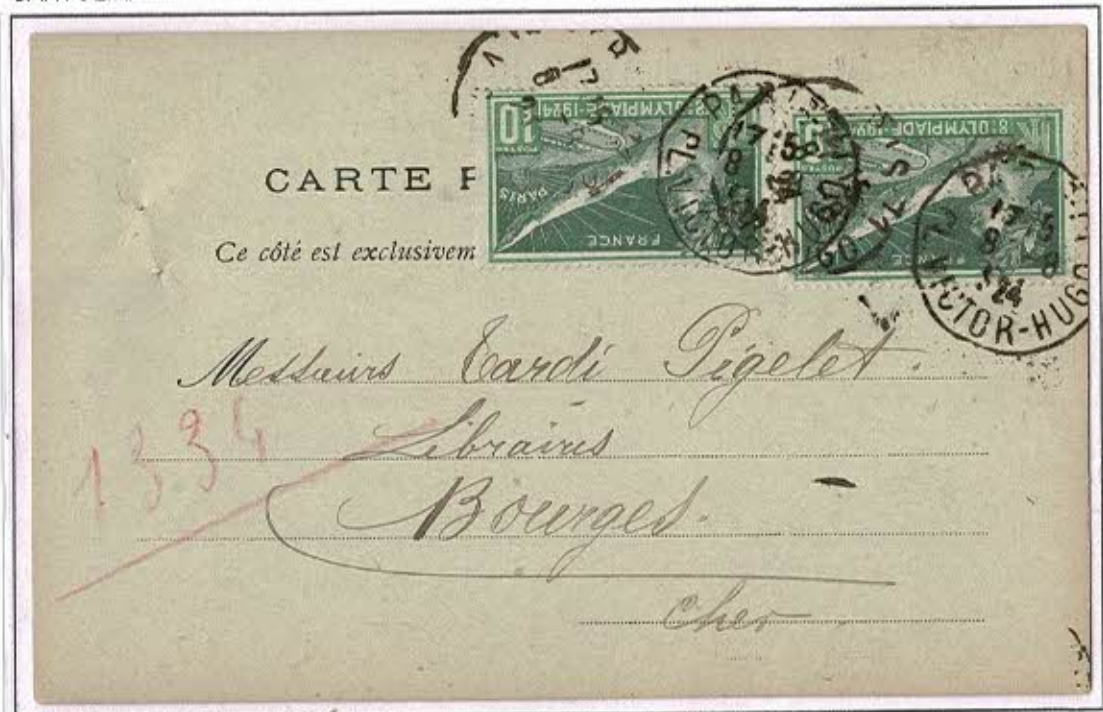 CARTE P
Ce côté est exclusivem
10
8E OLYMPIADE-1924
POSTES
PARIS
FRANCE
8E OLYMPIADE-1924
POSTES
FRANCE
PARIS
PL. VICTOR-HUGO
17 15
8
24
VICTOR-HUGO
Messieurs Tardi Pigelet.
Libraires
Bourges.
Cher
1334